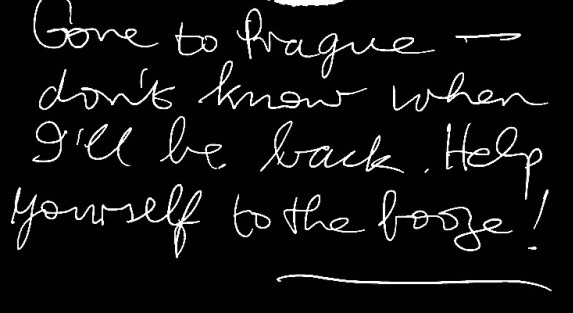 Gone to Prague —
don't know when
I'll be back. Help
yourself to the booze!